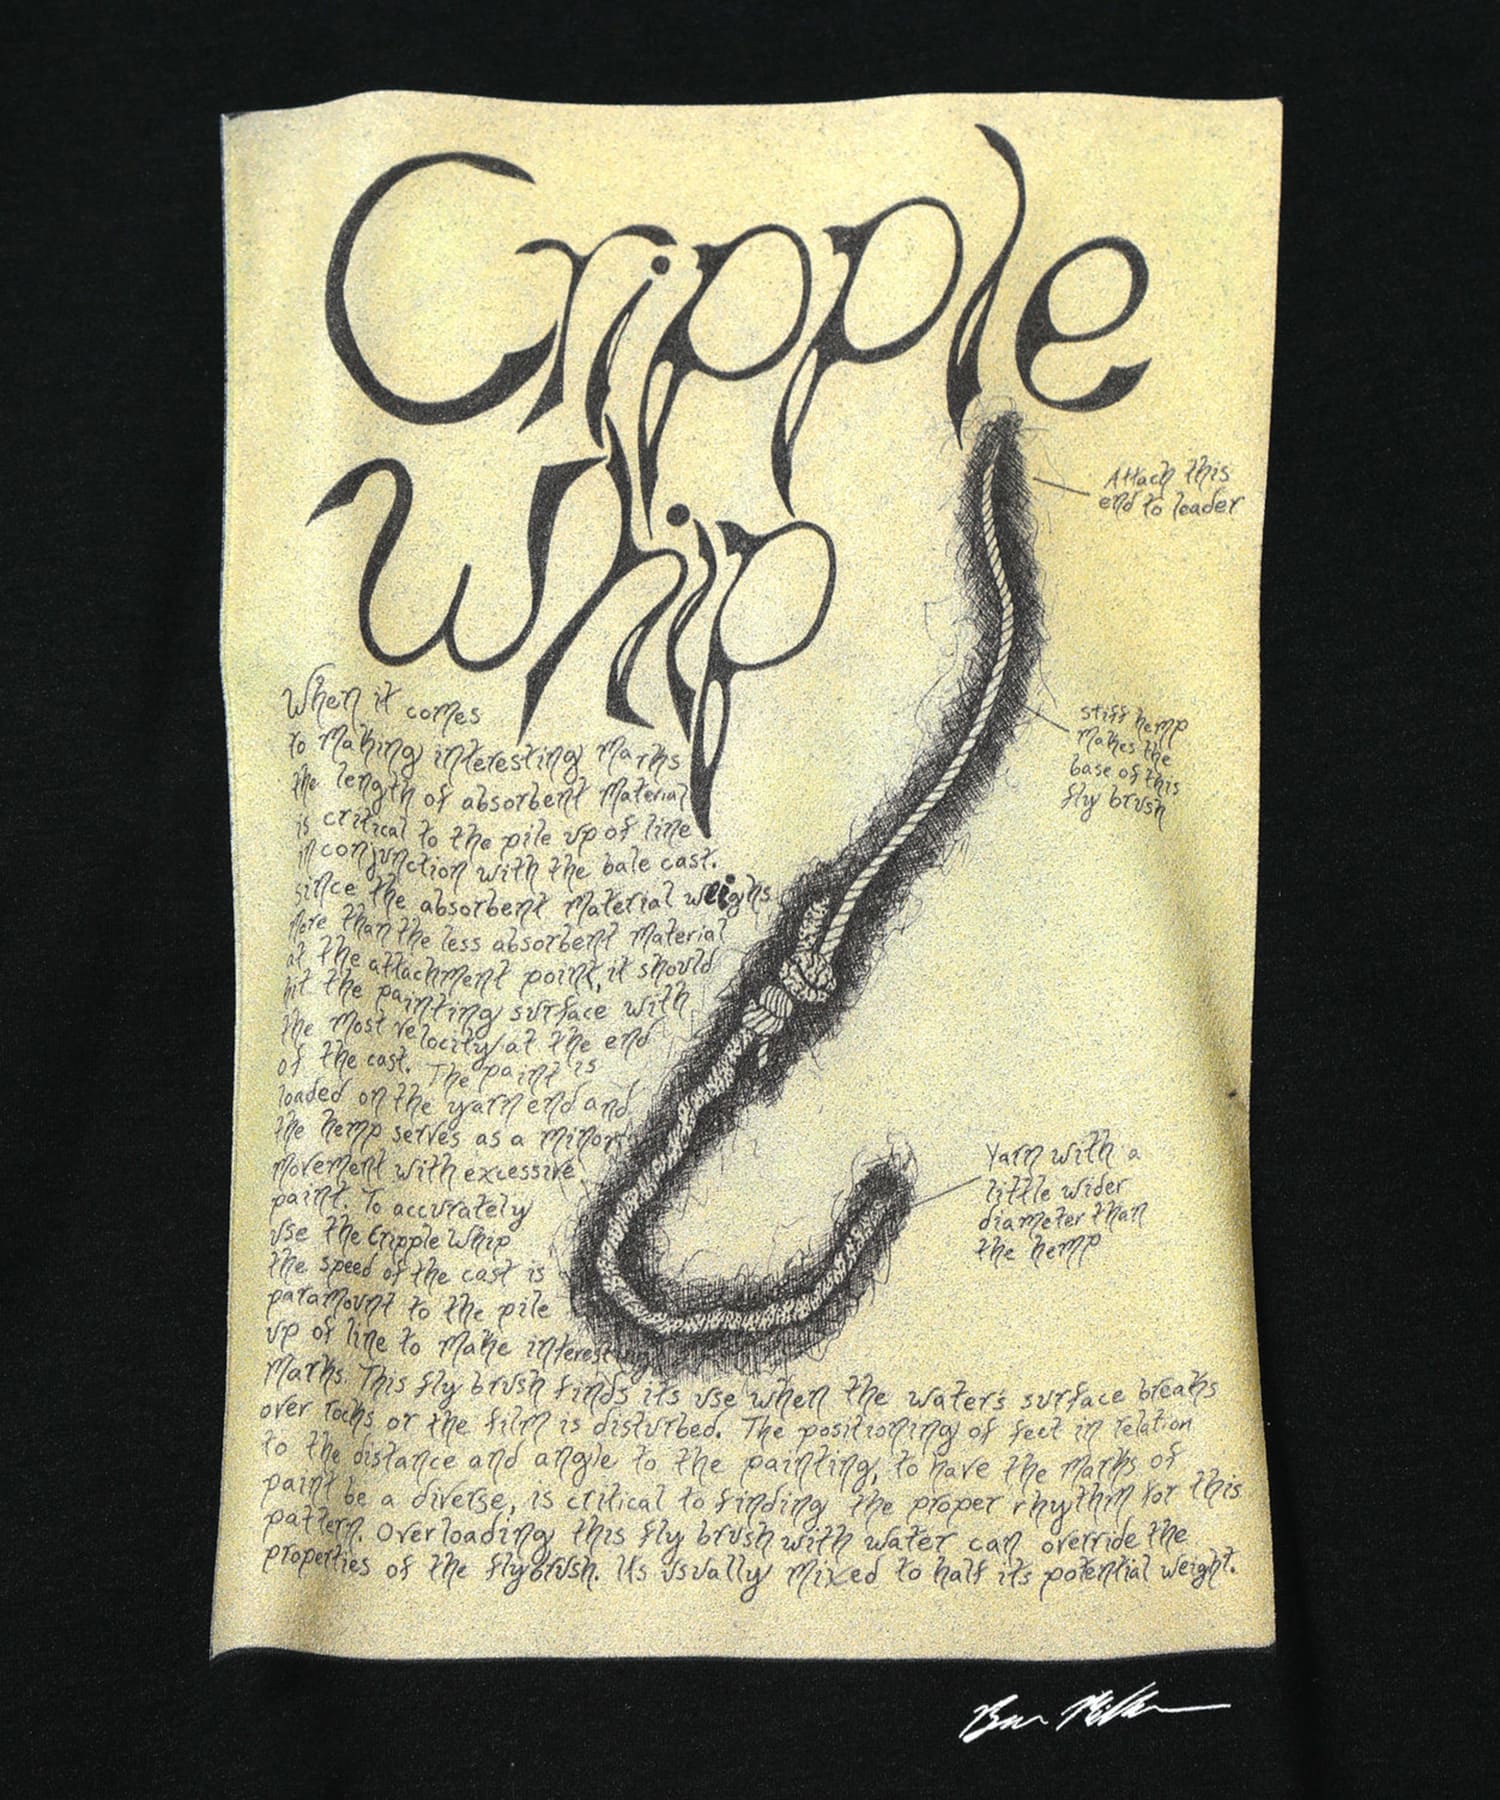 Cripple
Whip
Attach this
end to leader
stiff hemp
makes the
base of this
fly brush
When it comes
to making interesting marks
the length of absorbent material
is critical to the pile up of line
in conjunction with the bale cast.
since the absorbent material weighs
more than the less absorbent material
at the attachment point, it should
hit the painting surface with
the most velocity at the end
of the cast. The paint is
loaded on the yarn end and
the hemp serves as a minor
movement with excessive
paint. To accurately
use the Cripple Whip
the speed of the cast is
paramount to the pile
up of line to make interesting
marks. This fly brush finds its use when the water's surface breaks
over rocks or the film is disturbed. The positioning of feet in relation
to the distance and angle to the painting, to have the marks of
paint be a diverse, is critical to finding the proper rhythm for this
pattern. Overloading this fly brush with water can override the
properties of the flybrush. Its usually mixed to half its potential weight.
Yarn with a
little wider
diameter than
the hemp
Ben Miller